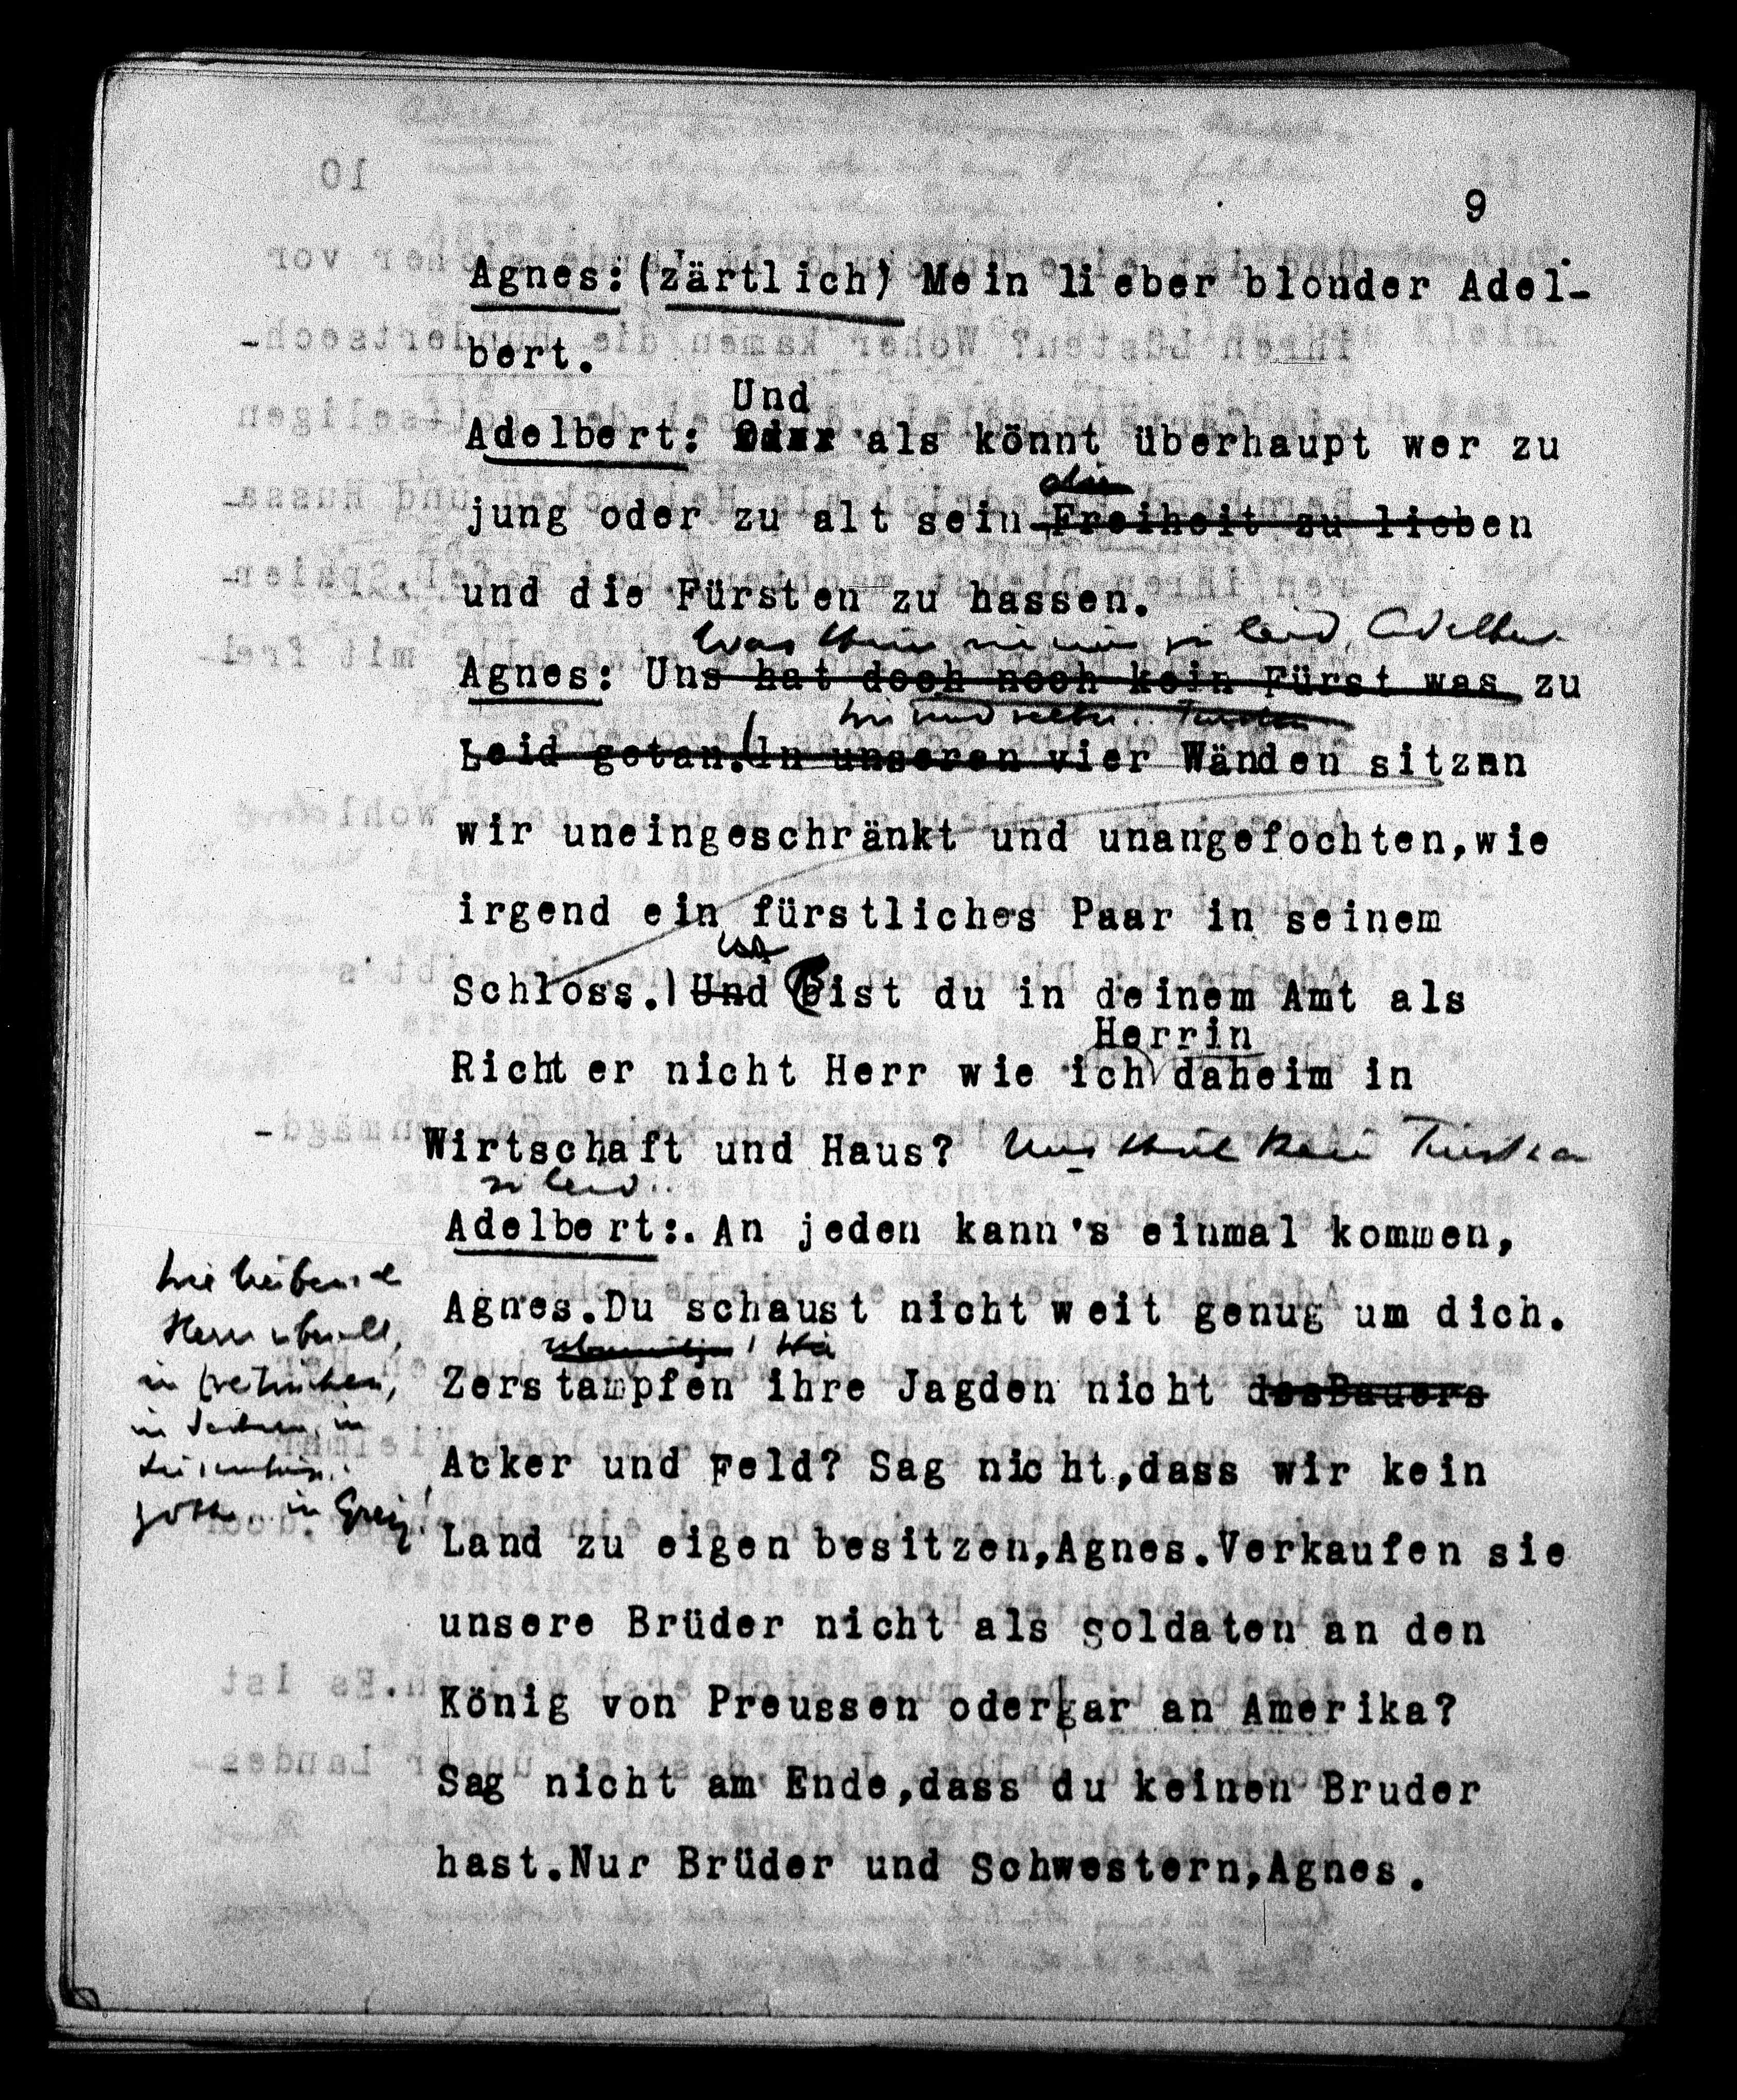 9
Agnes:(zärtlich) Mein lieber blonder Adel-
bert.
Und
Adelbert: Oder als könnt überhaupt wer zu
die
jung oder zu alt sein Freiheit zu lieben
und die Fürsten zu hassen.
Was zu leid, Adelber
Agnes: Uns hat doch noch kein Fürst was zu
wir sind
Leid getan.(In unseren vier Wänden sitzen
wir uneingeschränkt und unangefochten,wie
irgend ein fürstliches Paar in seinem
Schloss.) Und Bist du in deinem Amt als
Herrin
Richter nicht Herr wie ich daheim in
Wirtschaft und Haus? Uns kein
zu leid..
Adelbert:.An jeden kann's einmal kommen,
Agnes.Du schaust nicht weit genug um dich.
Zerstampfen ihre Jagden nicht desBauers
Acker und Feld? Sag nicht,dass wir kein
Land zu eigen besitzen,Agnes.Verkaufen sie
unsere Brüder nicht als Soldaten an den
König von Preussen oder|gar an Amerika?
Sag nicht am Ende,dass du keinen Bruder
hast.Nur Brüder und Schwestern,Agnes.
Herrn überall,
in
in in
in Greiz!